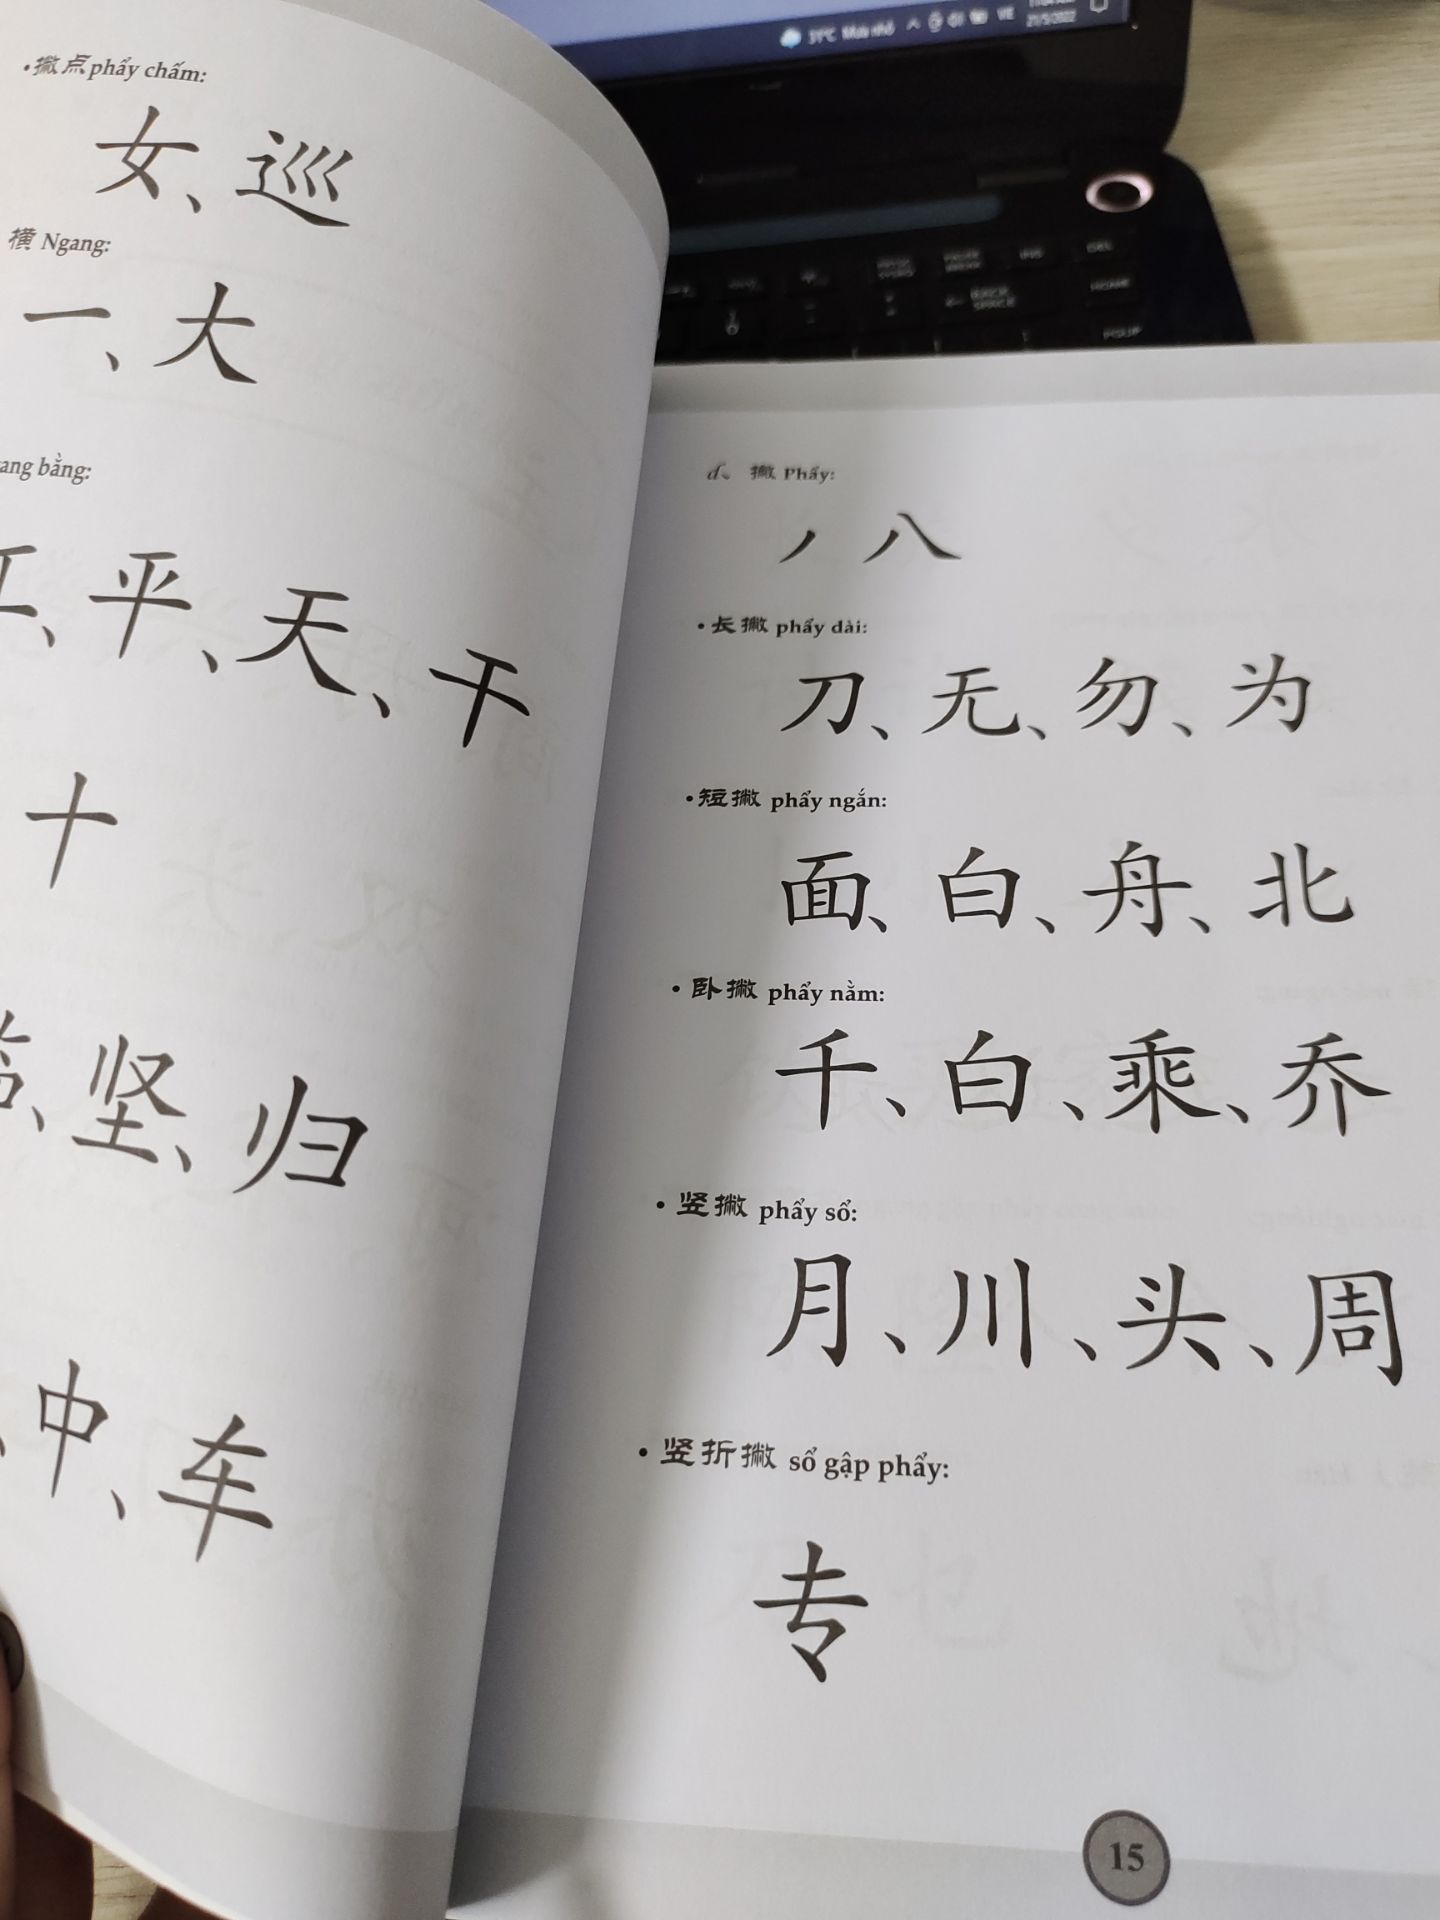 •撇点 phẩy chấm:
女、巡
横 Ngang:
一、大
bằng:
、平、天、干
十
、坚、归
、中、车
d、 撇 Phẩy:
丿 八
•长撇 phẩy dài:
刀、无、勿、为
•短撇 phẩy ngắn:
面、白、舟、北
• 卧撇 phẩy nằm:
千、白、乘、乔
• 竖撇 phẩy sổ:
月、川、头、周
• 竖折撇 sổ gập phẩy:
专
15
31°C Mưa nhỏ VIE
21/5/2022
DEL
HOME
BACK SPACE
PGUP